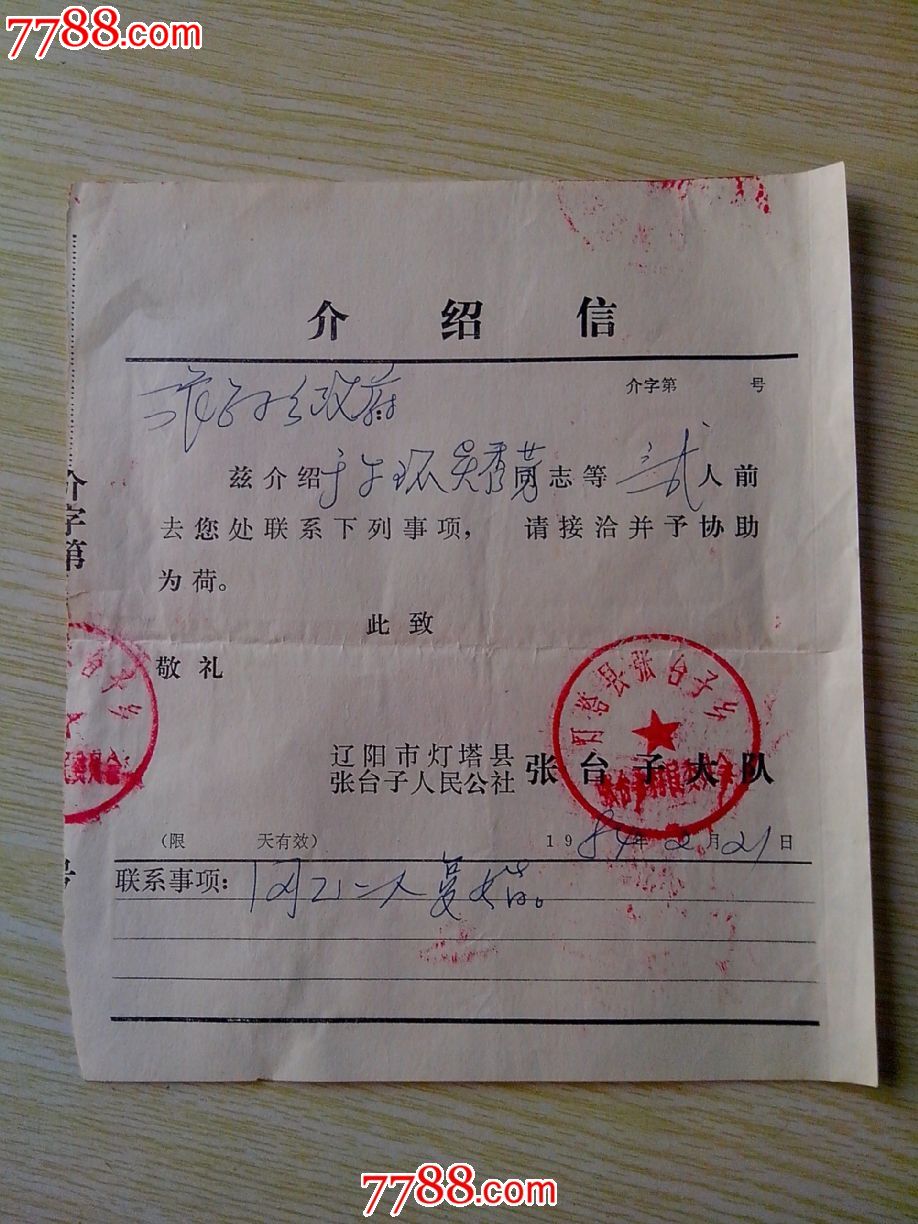 7788.com
介绍信
介字第 号
张台子乡政府
兹介绍于 环吴秀 同志等 贰人前
去您处联系下列事项, 请接洽并予协助
为荷。
此致
敬礼
介字第
号
台子乡
灯塔县张台子乡
辽阳市灯塔县
张台子人民公社 张台子大队
(限 天有效) 1984年2月21日
联系事项: 二人复婚。
7788.com